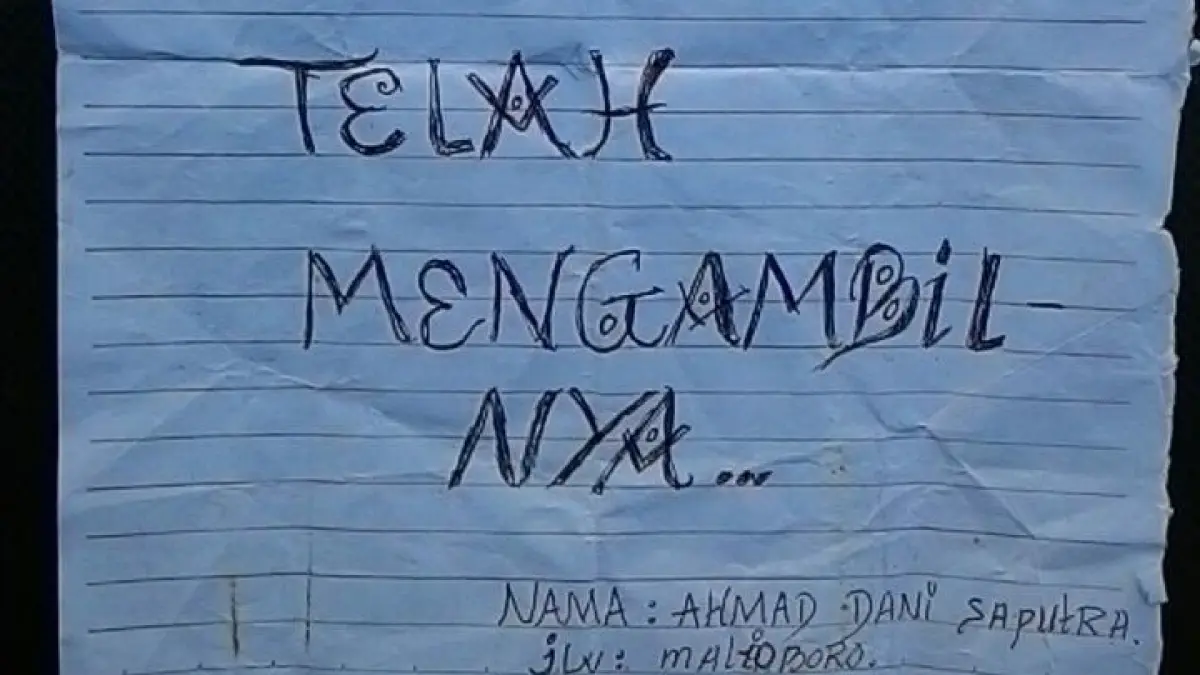 TELAH
MENGAMBIL-
NYA...
NAMA : AHMAD DANI SAPUTRA.
jLN : MALIOBORO.